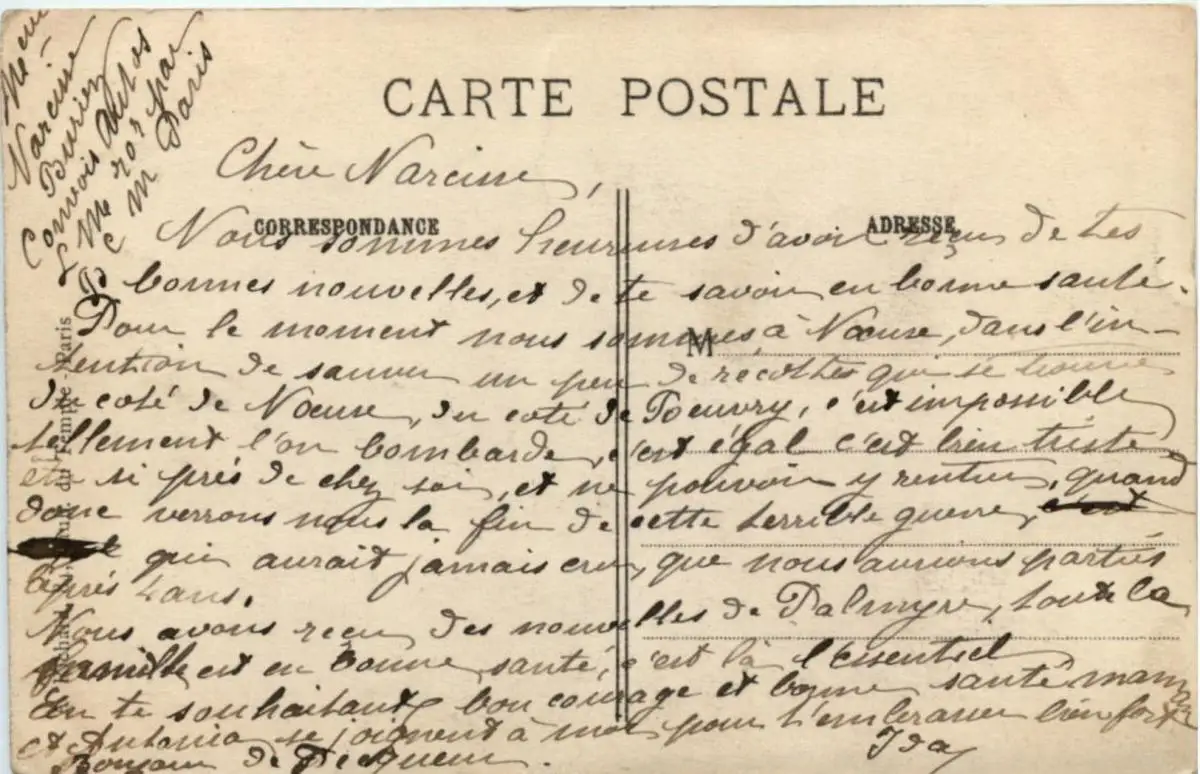 CARTE POSTALE
Narcisse
Convois Autos
par
Paris
Chère Narcisse,
CORRESPONDANCE
ADRESSE
Nous sommes heureuses d'avoir reçu de tes
bonnes nouvelles, et de te savoir en bonne santé.
M
Pour le moment nous sommes, à Nœuse, dans l'in-
tention de sauver un peu de récoltes qui se trouve
du coté de Nœuse, du coté de c'est impossible
tellement l'on bombarde, c'est égal c'est bien triste
si près de chez soi, et ne pouvoir y rentrer, quand
donc verrons nous la fin de cette terrible guerre,
qui aurait jamais cru, que nous aurions partis
après 4 ans.
Nous avons reçu des nouvelles de Palmyre, toute la
famille est en bonne santé, c'est là l'essentiel
En te souhaitant bon courage et bonne santé maman
et Antonia se joignent à moi pour t'embrasser bien fort
Bonjour de Ida
Paris